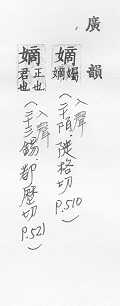 廣韻
嫡
(入聲 二十陌 陟格切 P.510)
嫡 正也君也
(入聲 二十三錫·都歷切 P.521)